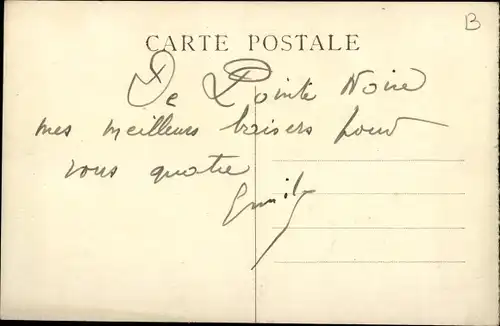 CARTE POSTALE
B
De Pointe Noire
mes meilleurs baisers pour
vous quatre